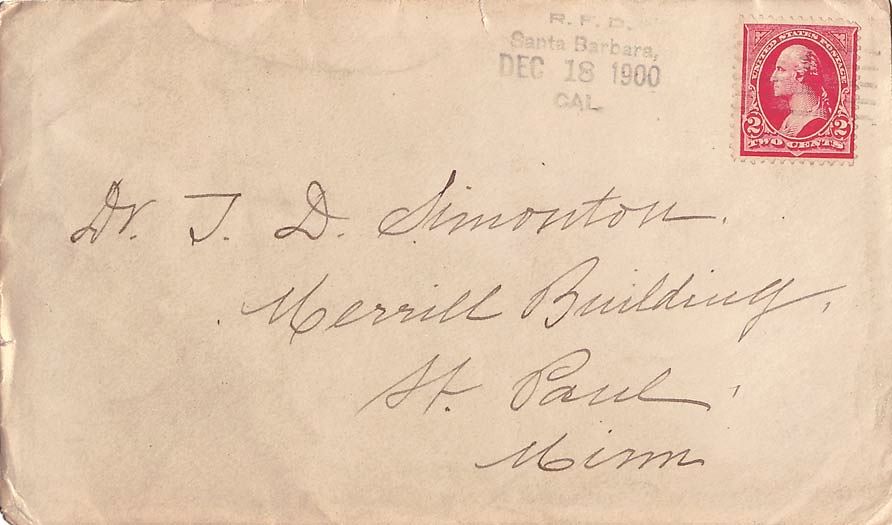 R. F. D.
Santa Barbara,
DEC 18 1900
CAL.
UNITED STATES POSTAGE
2 2
TWO CENTS
Dr. T. D. Simonton.
Merrill Building,
St. Paul,
Minn